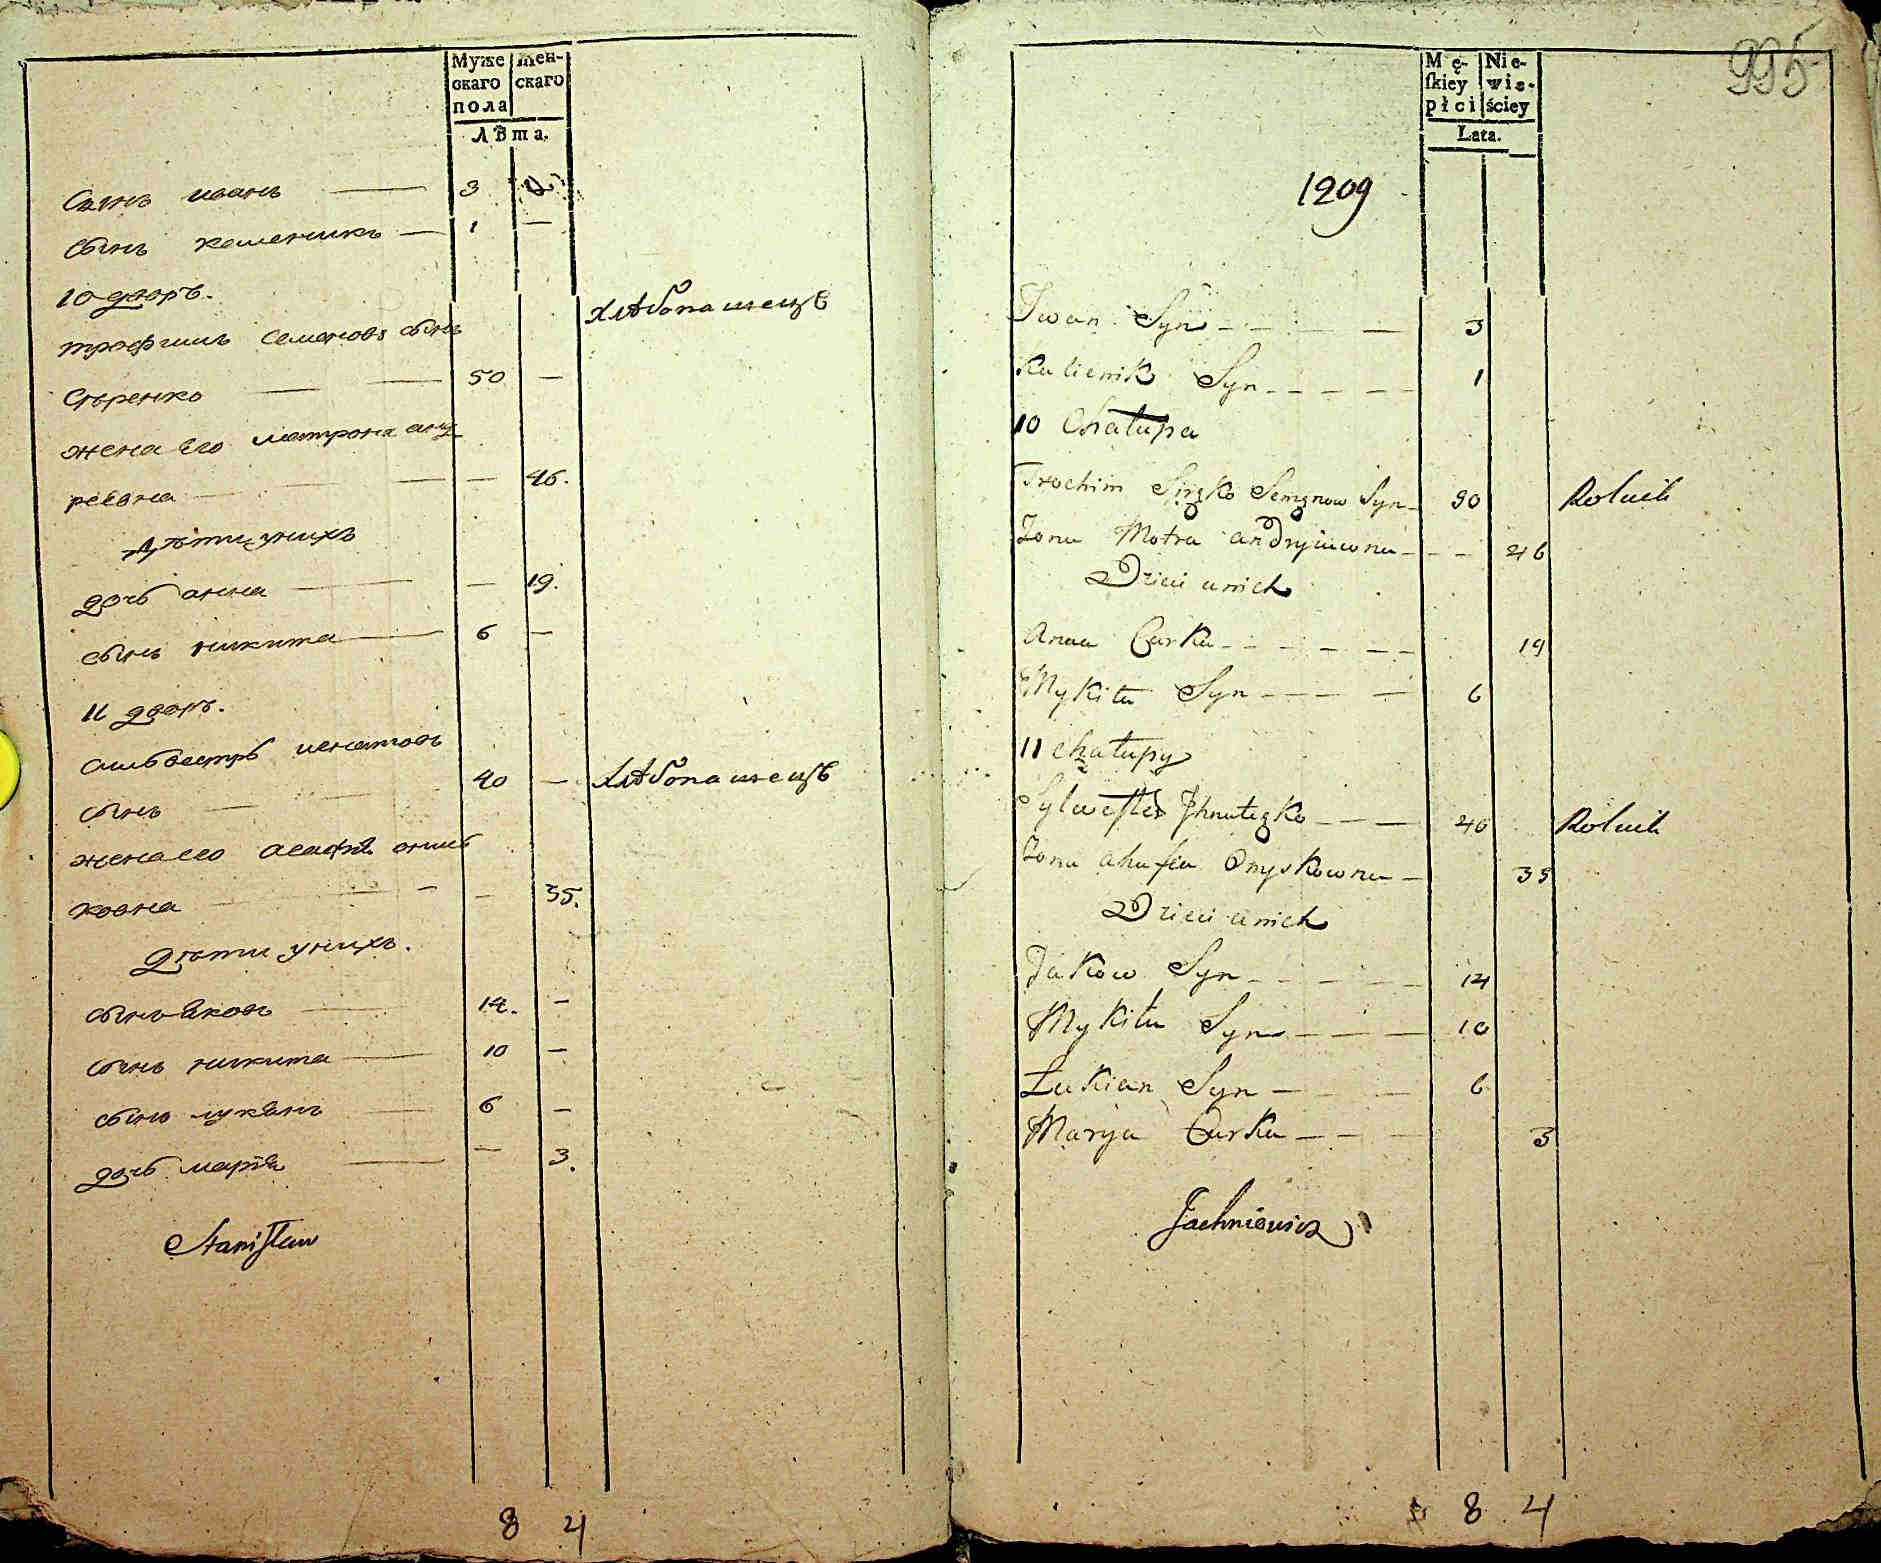 Муже
скаго
пола
Жен-
скаго
Лѣта.
Сынъ иванъ — 3
сынъ каленикъ — 1 —
10 дворъ.
трофимъ Семеновъ сынъ
Сѣренко — — 50 —
Хлѣбопашецъ
жена его матрона анд
реевна — — — — 46.
дѣти унихъ
дочь анна — — 19.
сынъ никита — 6 —
11 дворъ.
сильвестръ игнатовъ
сынь — — 40 —
Хлѣбопашецъ
жена его агафія онись
ковна — — — 35.
дѣти унихъ.
сынъ яковъ — 14. —
сынъ никита — 10 —
сынъ лукянъ — 6 —
дочь марія — — 3.
Stanisław
8 4
995
Mę-
ſkiey
płci
Nie-
wie-
ściey
Lata.
1209
Iwan Syn — — — 3
Kalienik Syn — — — — 1
10 Chałupa
Trochim Semenow Syn — 50
Rolnik
Zona Motra andryiuwna — — 46
Dzieci unich
Anna Curka — — — — — 19
Mykita Syn — — — 6
11 chałupy
Sylwester Jhnateńko — — — 40
Rolnik
Zona ahafia Onyskowna — 35
Dzieci unich
Jakow Syn — — — — 14
Mykita Syn — — — 10
Łukian Syn — — — 6
Marya Curka — — — 3
Jachniewicz
8 4